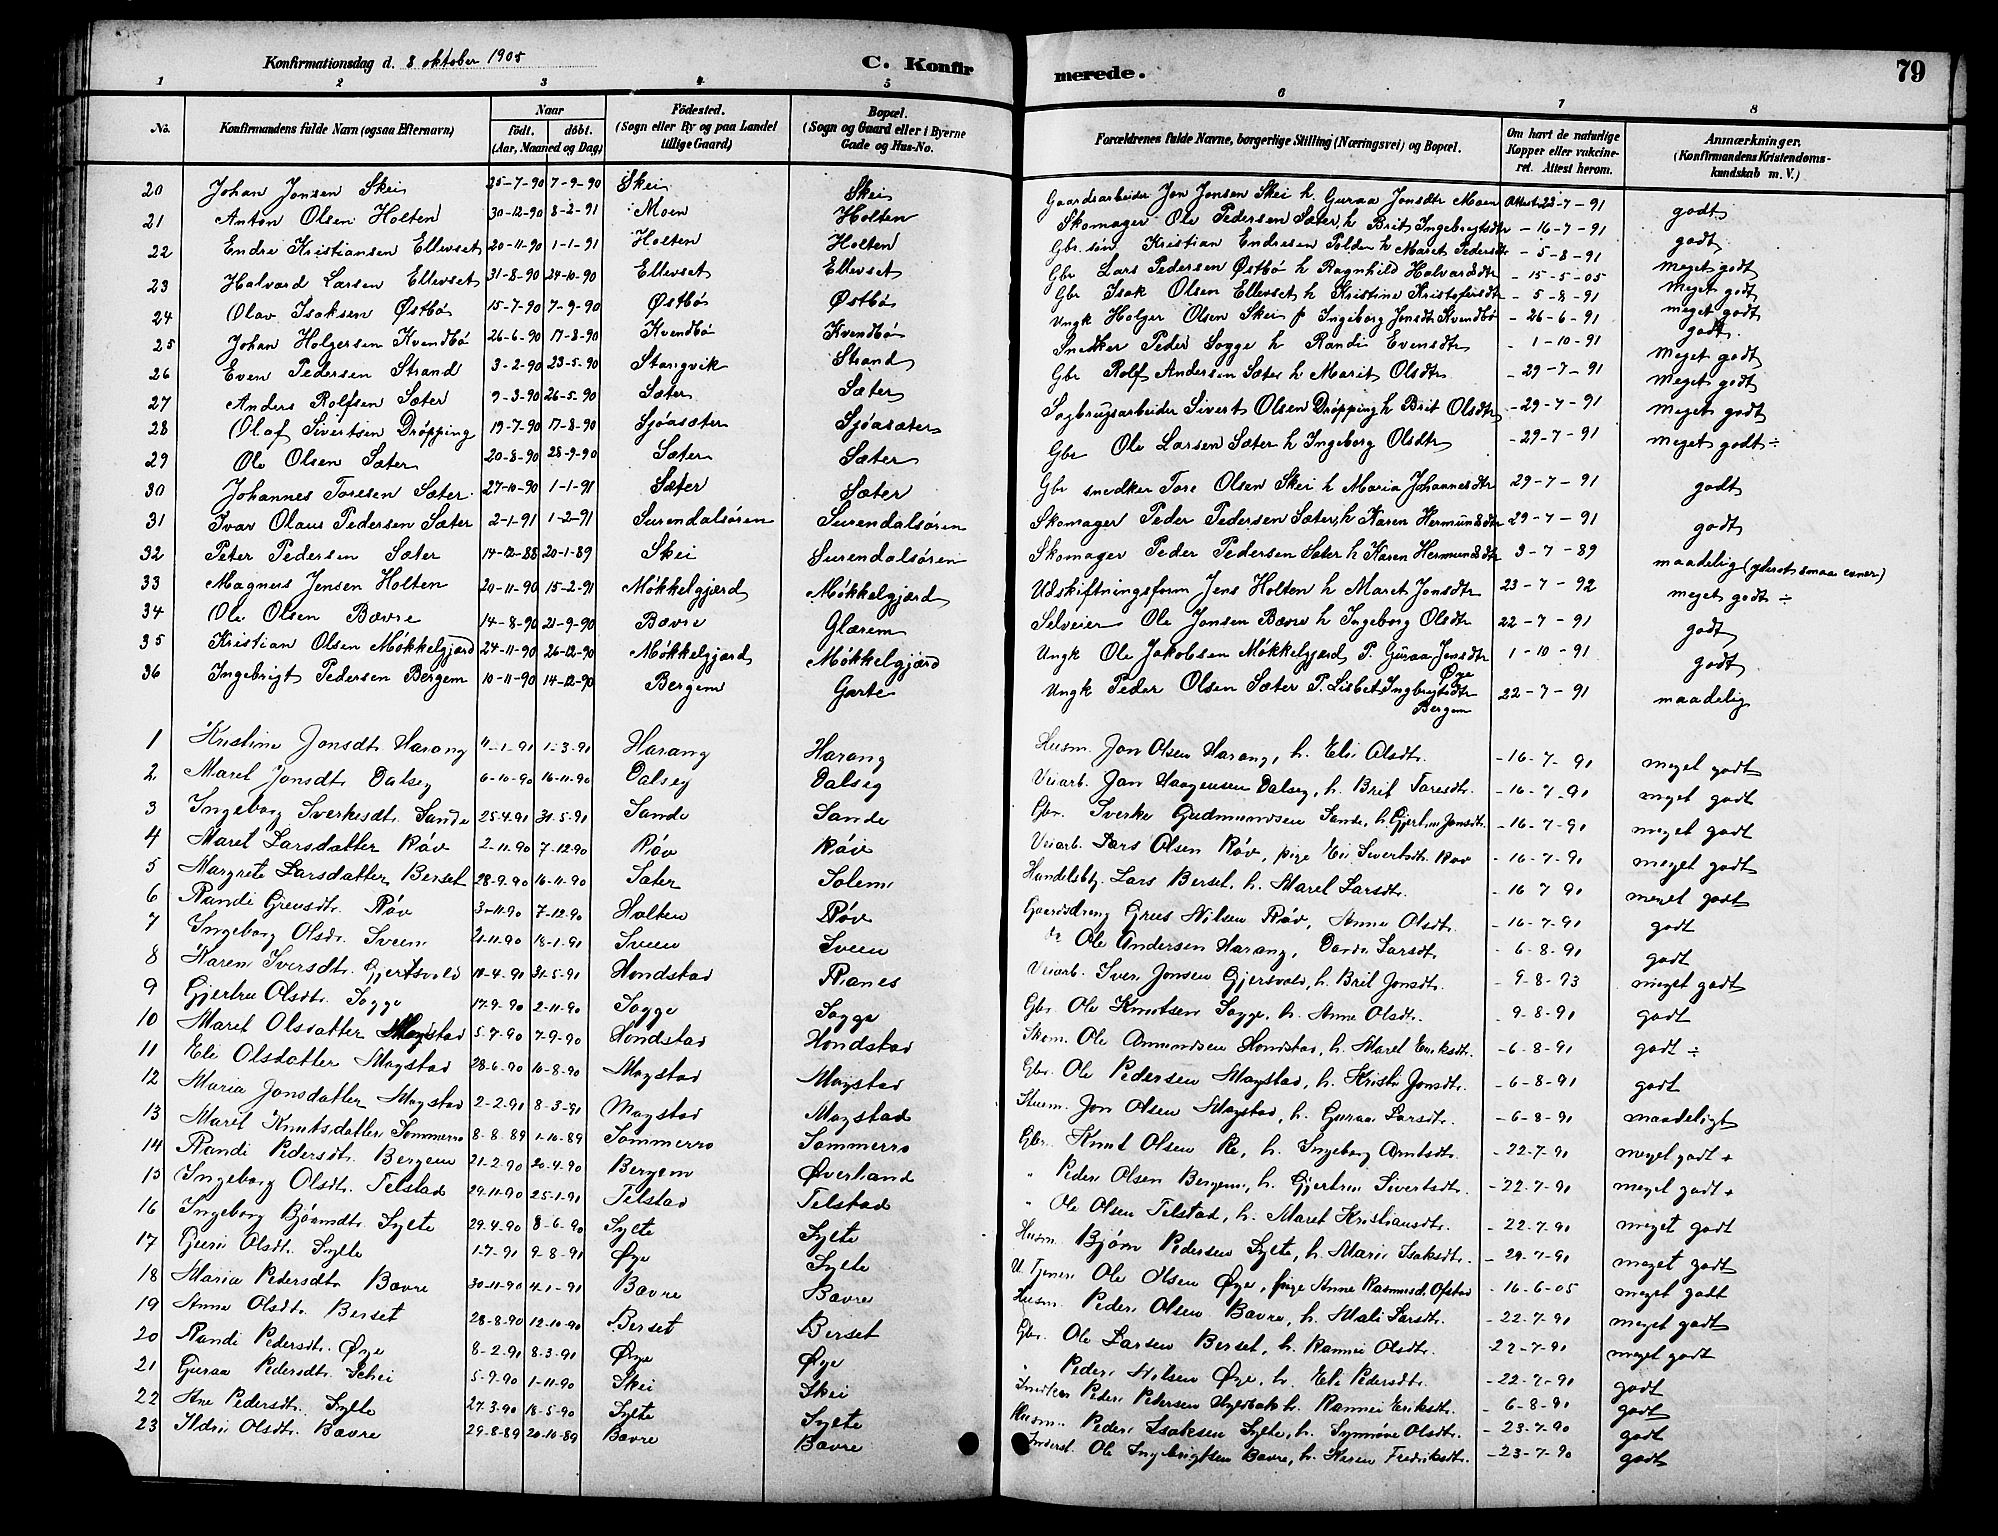 Konfirmationsdag d. 8 oktober 1905 C. Konfirmerede. 79
1 2 3 4 5 6 7 8
No. Konfirmandens fulde Navn (ogsaa Efternavn) Naar født. døbt. (Aar, Maaned og Dag) Födested. (Sogn eller By og paa Landet tillige Gaard) Bopæl. (Sogn og Gaard eller i Byerne Gade og Hus-No. Forældrenes fulde Navne, borgerlige Stilling (Næringsvei) og Bopæl. Om havt de naturlige Kopper eller vakcineret. Attest herom. Anmærkninger. (Konfirmandens Kristendomskundskab m. V.)
20 Johan Jonsen Skei 25-7-90 7-9-90 Skei Skei Gaardsarbeider Jon Jonsen Skei h. Guraa Jonsdtr Moen Attest 23-7-91 godt
21 Anton Olsen Holten 30-12-90 8-2-91 Moen Holten Skomager Ole Pedersen Sæter, h Brit Ingebrigtsdtr - 16-7-91 godt
22 Endre Kristiansen Ellevset 20-11-90 1-1-91 Holten Holten Gbr. søn Kristian Endresen Polden h Maret Pedersdtr - 5-8-91 meget godt
23 Halvard Larsen Ellevset 31-8-90 24-10-90 Ellevset Ellevset Gbr Lars Pedersen Østbö h Ragnhild Halvardsdtr - 15-5-05 meget godt
24 Olav Isaksen Østbø 15-7-90 7-9-90 Østbö Østbö Gbr Isak Olsen Ellevset h Kristine Kristofersdtr - 5-8-91 meget godt
25 Johan Holgersen Kvendbö 26-6-90 17-8-90 Kvendbö Kvendbö Ungk Holger Olsen Skei p Ingeborg Jonsdtr Kvendbö - 26-6-91 godt.
26 Even Pedersen Strand 3-2-90 23-5-90 Stangvik Strand Snedker Peder Sogge h Randi Evensdtr - 1-10-91 meget godt
27 Anders Rolfsen Sæter 9-3-90 26-5-90 Sæter Sæter Gbr Rolf Andersen Sæter h Marit Olsdtr - 29-7-91 meget godt
28 Olaf Sivertsen Dröpping 19-7-90 17-8-90 Sjöasæter Sjöasæter Sagbrugsarbeider Sivert Olsen Dröpping h Brit Olsdtr - 29-7-91 meget godt
29 Ole Olsen Sæter 20-8-90 28-9-90 Sæter Sæter Gbr Ole Larsen Sæter h Ingeborg Olsdtr - 29-7-91 meget godt ÷
30 Johannes Toresen Sæter 27-10-90 1-1-91 Sæter Sæter Gbr snedker Tore Olsen Skei h Maria Johannesdtr 29-7-91 godt
31 Ivar Olaus Pedersen Sæter 2-1-91 1-2-91 Surendalsören Surendalsören Skomager Peder Pedersen Sæter, h Karen Hermundsdtr 29-7-91 godt
32 Peter Pedersen Sæter 14-12-88 20-1-89 Skei Surendalsören Skomager Peder Pedersen Sæter h Karen Hermundsdtr 3-7-89 maadelig (yderst smaa evner)
33 Magnus Jensen Holten 20-11-90 15-2-91 Mökkelgjærd Mökkelgjærd Udskiftningsform Jens Holten h Maret Jonsdtr 23-7-92 meget godt ÷
34 Ole Olsen Bævre 14-8-90 21-9-90 Bævre Glærem Selveier Ole Jonsen Bævre h Ingeborg Olsdtr 22-7-91 godt
35 Kristian Olsen Mökkelgjærd 24-11-90 26-12-90 Mökkelgjærd Mökkelgjærd Ungk Ole Jakobsen Mökkelgjærd P. Guraa Jonsdtr Øye 1-10-91 godt
36 Ingebrigt Pedersen Bergem 10-11-90 14-12-90 Bergem Garte Ungk Peder Olsen Sæter P. Lisbet Ingbrigtsdtr Bergem 22-7-91 maadelig
1 Kristine Jonsdt. Harang 11-1-91 1-3-91 Harang Harang Husm. Jon Olsen Harang, h. Eli Olsdt. - 16-7-91 meget godt
2 Maret Jonsdt. Dalsey 6-10-90 16-11-90 Dalsey Dalsey Veiarb. Jon Haagensen Dalsey, h. Brit Toresdt. - 16-7-91 meget godt
3 Ingeborg Sverkesdt. Sande 25-4-91 31-5-91 Sande Sande Gbr. Sverke Gudmundsen Sande, h. Gjertru Jonsdt. - 16-7-91 meget godt
4 Maret Larsdatter Røv 2-11-90 7-12-90 Røv Røv Veiarb. Lars Olsen Røv, pige Eli Sivertsdt. Røv - 16-7-91 meget godt
5 Margrete Larsdatter Berset 28-9-90 16-11-90 Sæter Solem Handelsb. Lars Berset, h. Maret Larsdt. - 16 7 91 meget godt
6 Randi Greusdt. Røv 3-11-90 7-12-90 Holten Røv Gaardsdreng Greus Nilsen Røv, Anne Olsdt. - 16-7-91 godt
7 Ingeborg Olsdt. Sveen 21-11-90 18-1-91 Sveen Sveen Ole Andersen Harang, Larsdt. - 6-8-91 godt
8 Karen Iversdt. Gjertsvold 18-4-91 31-5-91 Hondstad Ranes Veiarb. Iver Jonsen Gjersvold, h. Brit Jonsdt. - 9-8-93 meget godt
9 Gjertru Olsdt. Sogge 17-9-90 2-11-90 Sogge Sogge Gbr. Ole Knutsen Sogge, h. Anne Olsdt. - 9-8-91 godt
10 Maret Olsdatter Mogstad 5-7-90 7-9-90 Hondstad Hondstad Skom. Ole Amundsen Hondstad, h. Maret Eriksdt. - 6-8-91 godt ÷
11 Eli Olsdatter Mogstad 28-6-90 10-8-90 Mogstad Mogstad Gbr. Ole Pedersen Mogstad, h. Kristi Jonsdt. - 6-8-91 godt
12 Maria Jonsdatter Mogstad 2-2-91 8-3-91 Mogstad Mogstad Husm. Jon Olsen Mogstad, h. Guraa Larsdt. - 6-8-91 maadeligt
13 Maret Knutsdatter Sommerro 8-8-89 1-10-89 Sommerro Sommerro Gbr. Knut Olsen Re, h. Ingeborg Arntsdt. - 22-7-91 meget godt +
14 Randi Pedersdt. Bergem 21-2-90 20-4-90 Bergem Øverland " Peder Olsen Bergem, h. Gjertru Sivertsdt. - 22-7-91 meget godt +
15 Ingeborg Olsdt. Telstad 29-11-90 25-1-91 Telstad Telstad " Ole Olsen Telstad, h. Maret Kristiansdt. - 22-7-91 meget godt
16 Ingeborg Bjørnsdt. Sylte 29-4-90 8-6-90 Sylte Sylte Husm. Bjørn Pedersen Sylte, h. Marit Isaksdt. - 29-7-91 meget godt
17 Guri Olsdt. Sylte 1-7-91 9-8-91 Øye Sylte U. Tjener Ole Olsen Øye, pige Anne Rasmusd. Ofstad - 16-6-05 meget godt
18 Maria Pedersdt. Bævre 30-11-90 4-1-91 Bævre Bævre Husm. Peder Olsen Bævre, h. Mali Larsdt. - 22-7-91 meget godt
19 Anne Olsdt. Berset 28-8-90 12-10-90 Berset Berset Gbr. Ole Larsen Berset, h. Rannei Olsdt. - 22-7-91 meget godt
20 Randi Pedersdt. Øye 8-2-91 8-3-91 Øye Øye " Peder Nilsen Øye, h. Eli Pedersdt. - 22-7-91 godt
21 Guraa Pedersdt. Schei 5-9-90 1-11-90 Skei Skei Snedker Peder Pedersen h. Rannei Eriksdt. - 6-8-91 godt
22 Ane Pedersdt. Sylte 27-3-90 18-5-90 Sylte Sylte Husm. Peder Isaksen Sylte, h. Synnøve Olsdt. - 23-7-90 godt
23 Ildri Olsdt. Bævre 29-8-89 20-10-89 Bævre Bævre Inderst. Ole Ingebrigtsen Bævre, h. Karen Fredriksdt. - 23-7-90 godt